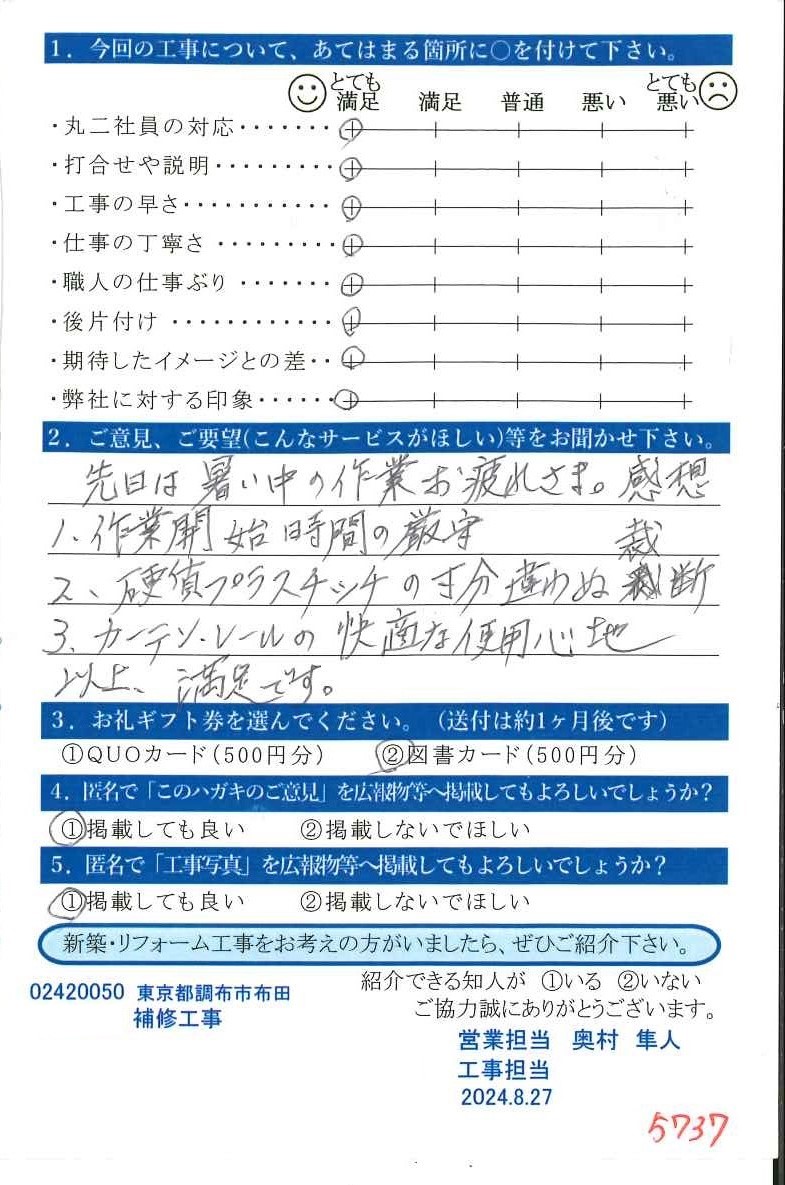 1. 今回の工事について、あてはまる箇所に○を付けて下さい。
とても満足 満足 普通 悪い とても悪い
・丸二社員の対応・・・・・・・
・打合せや説明・・・・・・・・・
・工事の早さ・・・・・・・・・・・
・仕事の丁寧さ ・・・・・・・・・
・職人の仕事ぶり ・・・・・・・
・後片付け ・・・・・・・・・・・・
・期待したイメージとの差・・
・弊社に対する印象・・・・・・
2. ご意見、ご要望(こんなサービスがほしい)等をお聞かせ下さい。
先日は暑い中の作業お疲れさま。感想
1. 作業開始時間の厳守
裁
2、硬質プラスチックの寸分違わぬ 断
3、カーテン・レールの快適な使用心地
以上、満足です。
3. お礼ギフト券を選んでください。 (送付は約1ヶ月後です)
①QUOカード(500円分) ②図書カード(500円分)
4. 匿名で「このハガキのご意見」を広報物等へ掲載してもよろしいでしょうか?
①掲載しても良い ②掲載しないでほしい
5. 匿名で「工事写真」を広報物等へ掲載してもよろしいでしょうか?
①掲載しても良い ②掲載しないでほしい
新築・リフォーム工事をお考えの方がいましたら、ぜひご紹介下さい。
紹介できる知人が ①いる ②いない
ご協力誠にありがとうございます。
02420050 東京都調布市布田
補修工事
営業担当 奥村 隼人
工事担当
2024.8.27
5737